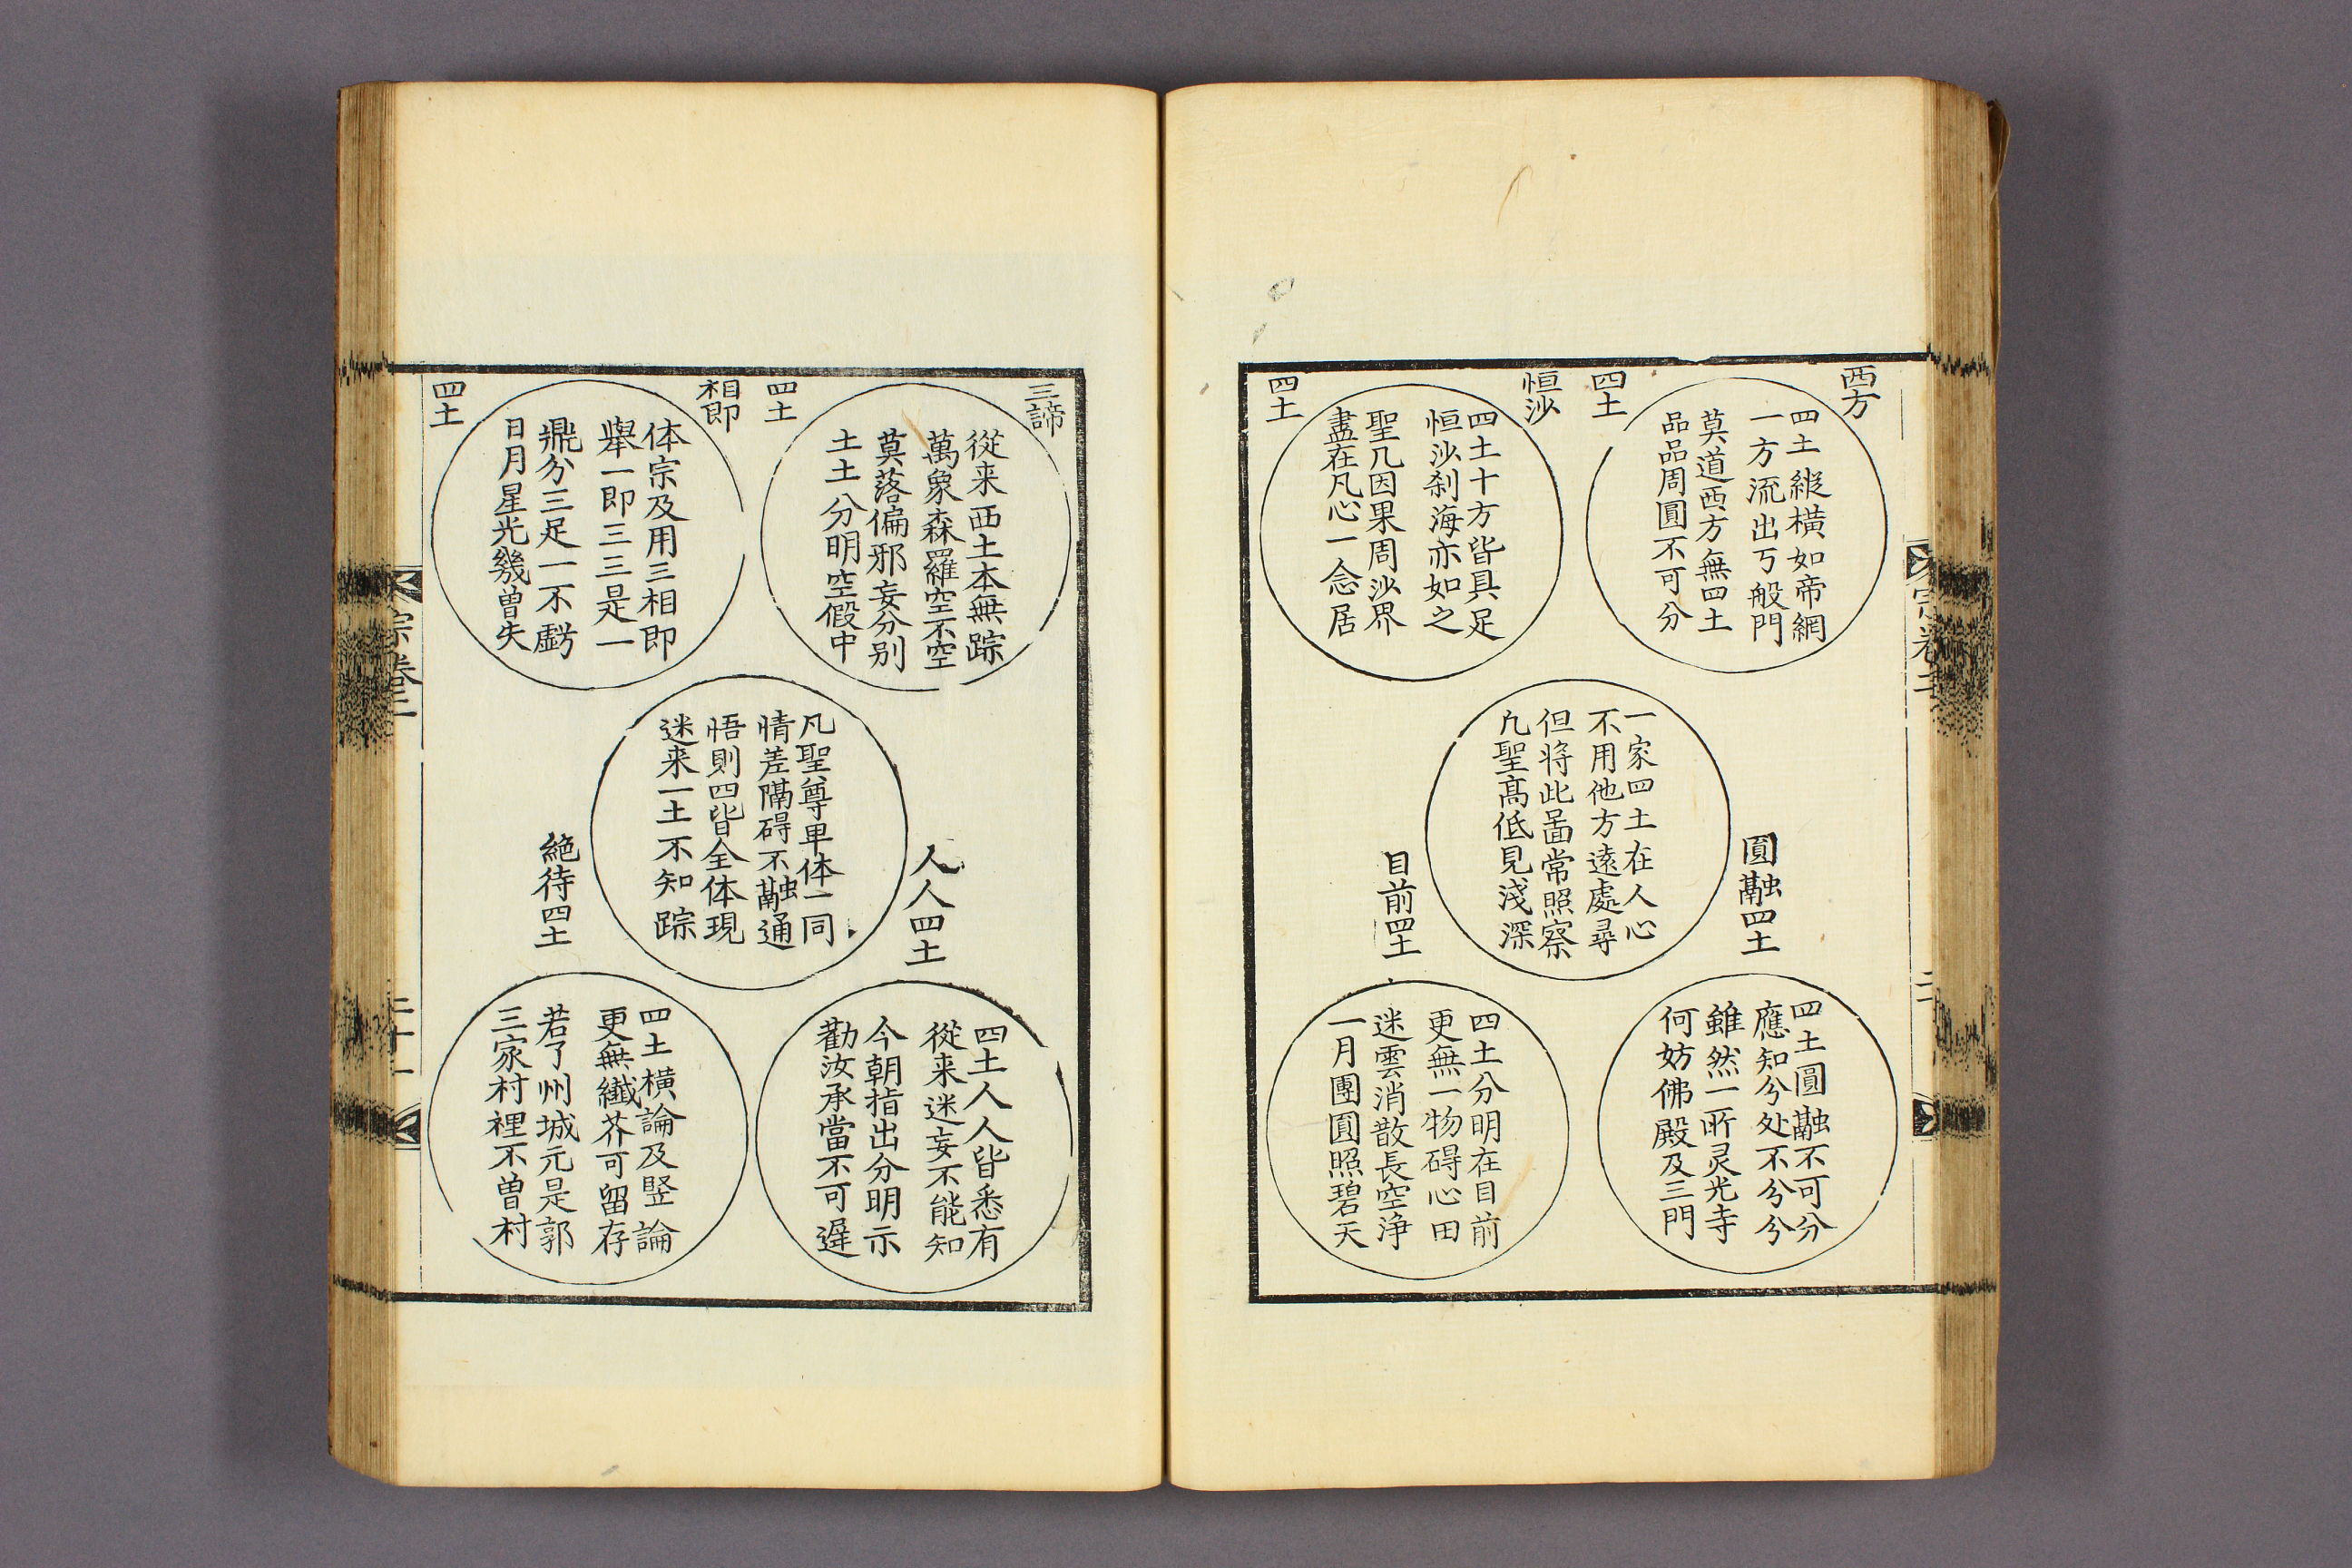 西方
四土
四土縱橫如帝網
一方流出丂般門
莫道西方無四土
品品周圓不可分
恒沙
四土
四土十方皆具足
恒沙刹海亦如之
聖凡因果周沙界
盡在凡心一念居
一家四土在人心
不用他方遠處尋
但將此啚常照察
凢聖髙低見淺深
圓融四土
四土圓融不可分
應知兮处不兮兮
雖然一所灵光寺
何妨佛殿及三門
目前四土
四土分明在目前
更無一物碍心田
迷雲消散長空浄
一月團圓照碧天
三諦
四土
從来西土本無踪
萬象森羅空不空
莫落偏邪妄分别
土土分明空假中
相即
四土
体宗及用三相即
舉一即三三是一
鼎分三足一不虧
日月星光幾曾失
凡聖尊卑体一同
情差隔碍不融通
悟則四皆全体現
迷来一土不知踪
人人四土
四土人人皆悉有
從来迷妄不能知
今朝指出分明示
勸汝承當不可遲
絶待四土
四土橫論及竪論
更無纖芥可留存
若了州城元是郭
三家村裡不曾村
宗卷二
二十一